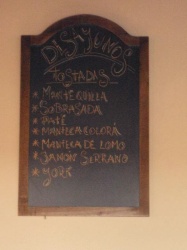 DESAYUNOS
TOSTADAS
* MANTEQUILLA
* SOBRASADA
* PATÉ
* MANTECA COLORÁ
* MANTECA DE LOMO
* JAMÓN SERRANO
* YORK